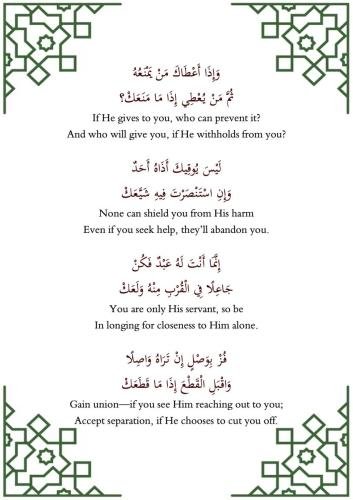 وَإِذَا أَعْطَاكَ مَنْ يَمْنَعُهُ
ثُمَّ مَنْ يُعْطِي إِذَا مَا مَنَعَكْ؟
If He gives to you, who can prevent it?
And who will give you, if He withholds from you?
لَيْسَ يُوقِيكَ أَذَاهُ أَحَدٌ
وَإِنِ اسْتَنْصَرْتَ فِيهِ شَيَّعَكْ
None can shield you from His harm
Even if you seek help, they’ll abandon you.
إِنَّمَا أَنْتَ لَهُ عَبْدٌ فَكُنْ
جَاعِلًا فِي الْقُرْبِ مِنْهُ وَلَعَكْ
You are only His servant, so be
In longing for closeness to Him alone.
فُزْ بِوَصْلٍ إِنْ تَرَاهُ وَاصِلًا
وَاقْبَلِ الْقَطْعَ إِذَا مَا قَطَعَكْ
Gain union—if you see Him reaching out to you;
Accept separation, if He chooses to cut you off.